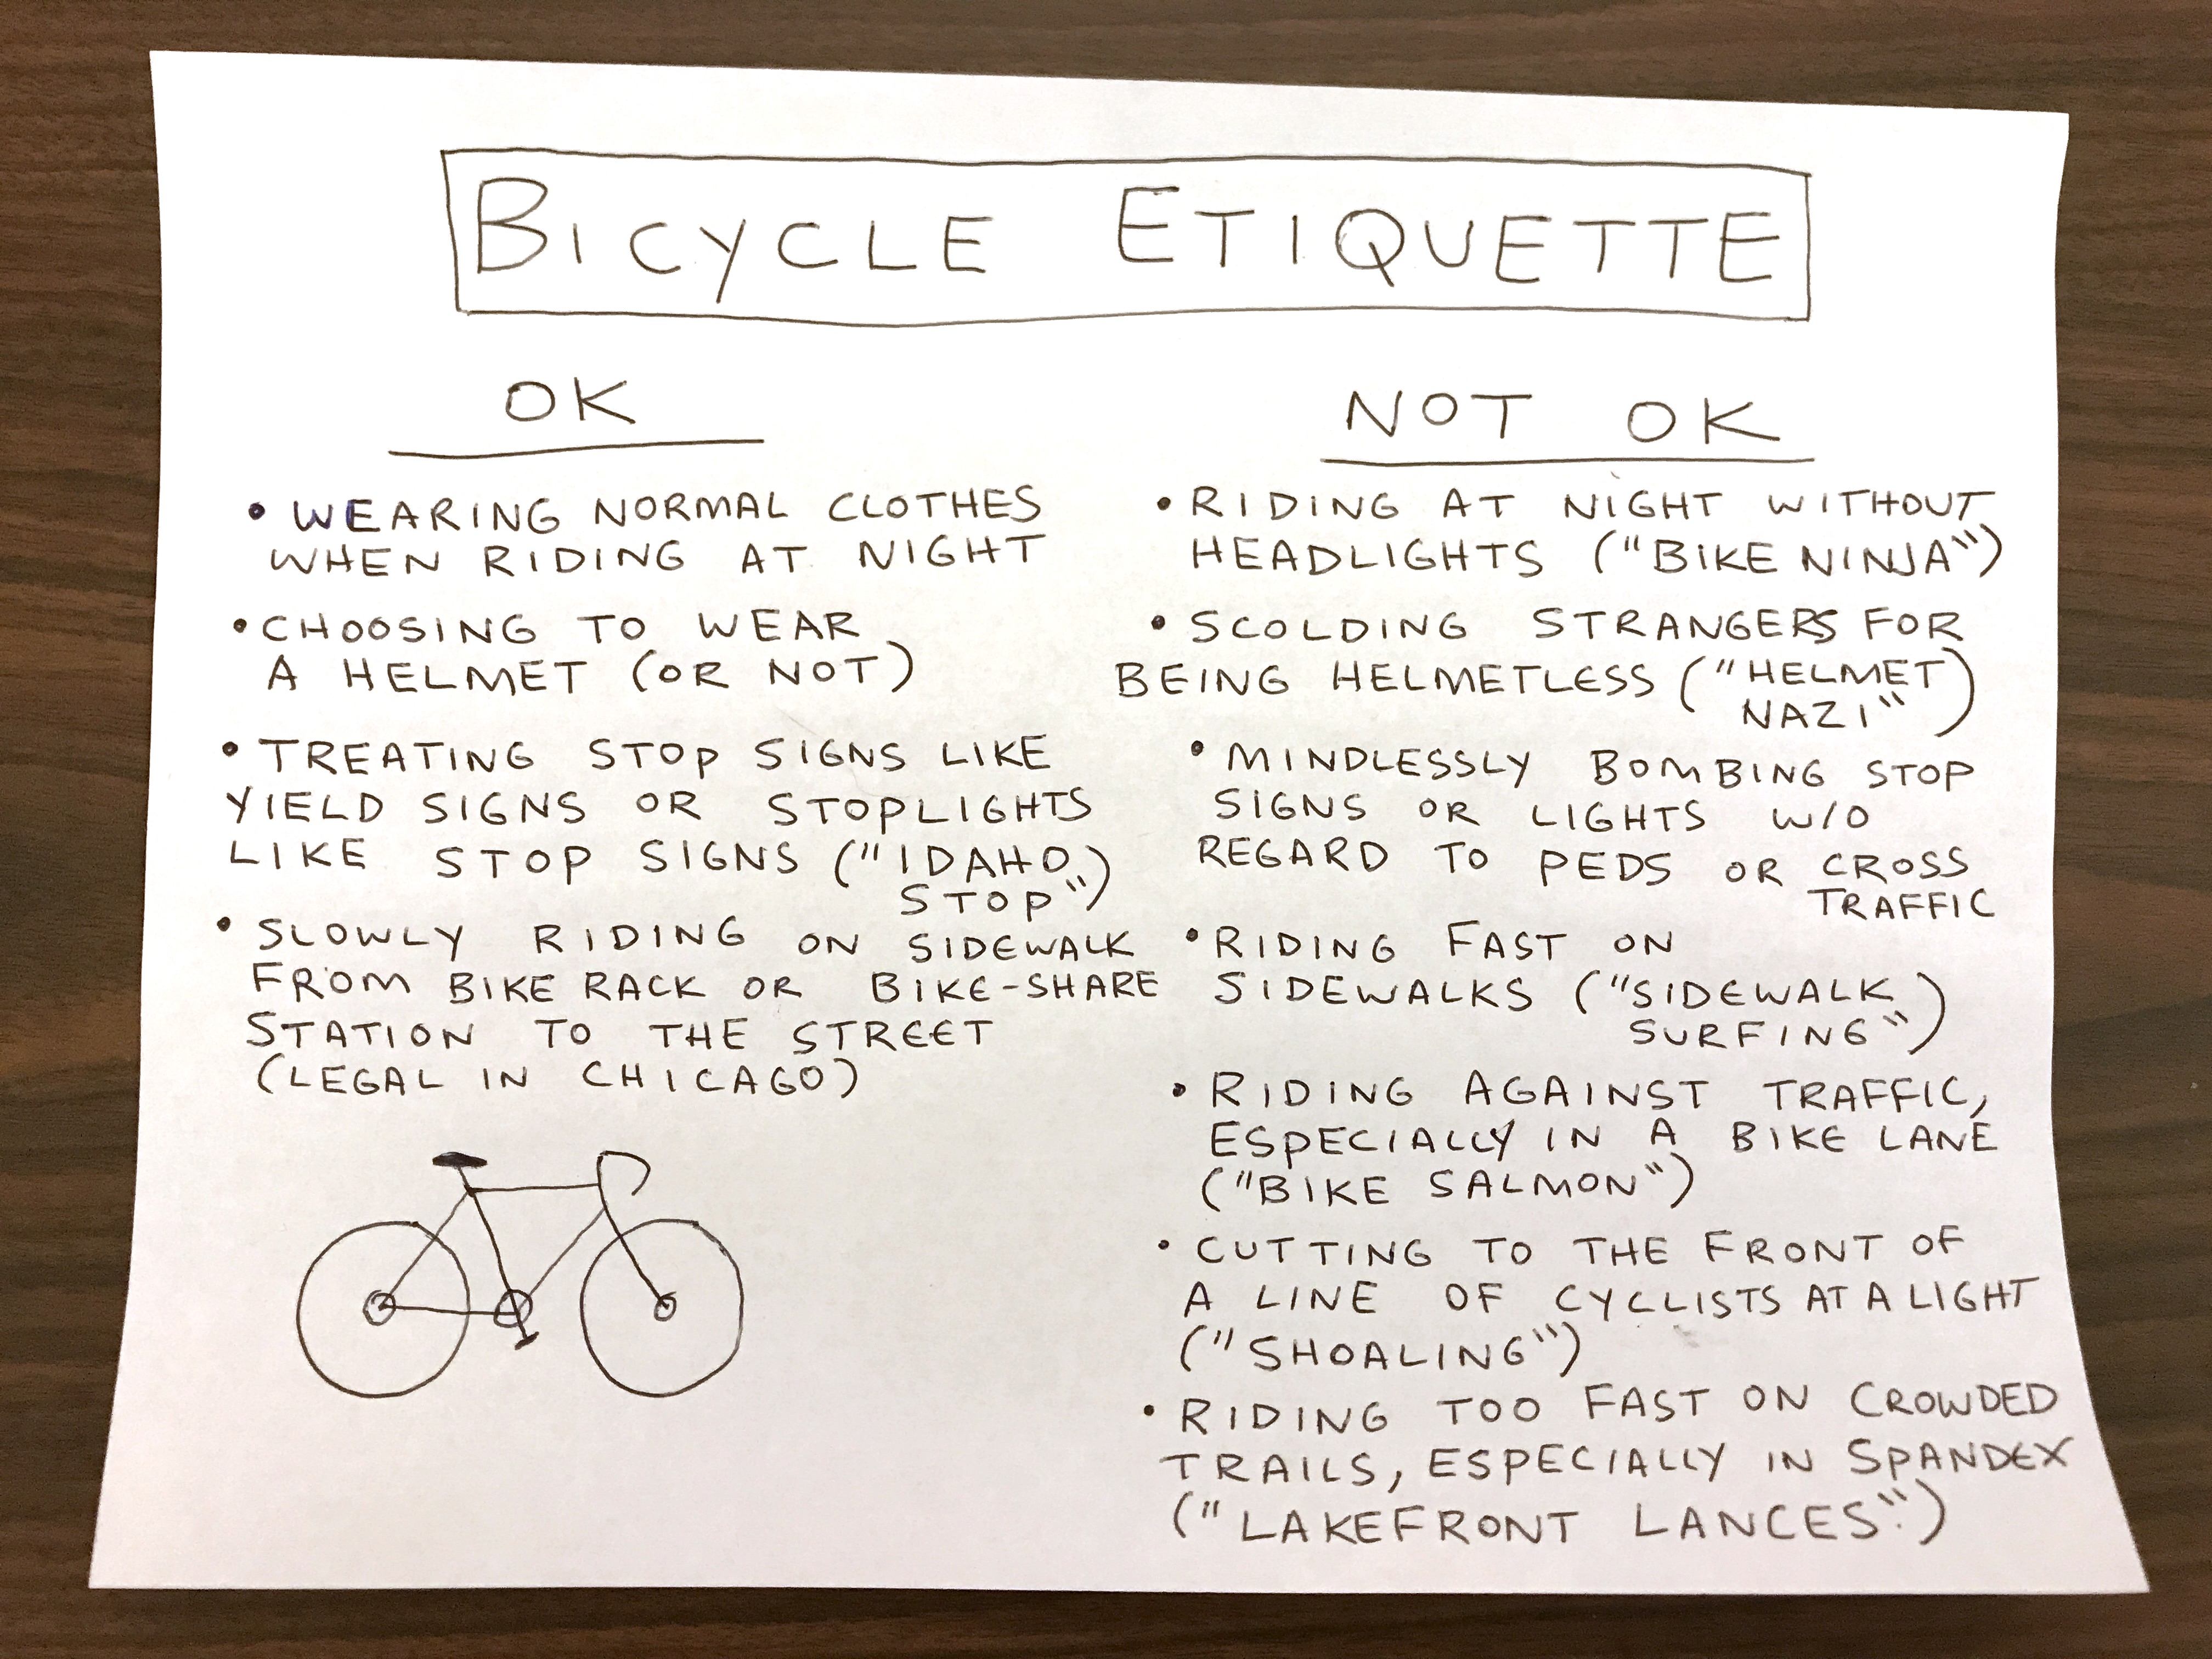 BICYCLE ETIQUETTE
OK
• WEARING NORMAL CLOTHES
WHEN RIDING AT NIGHT
• CHOOSING TO WEAR
A HELMET (OR NOT)
• TREATING STOP SIGNS LIKE
YIELD SIGNS OR STOPLIGHTS
LIKE STOP SIGNS ("IDAHO
STOP")
• SLOWLY RIDING ON SIDEWALK
FROM BIKE RACK OR BIKE-SHARE
STATION TO THE STREET
(LEGAL IN CHICAGO)
NOT OK
• RIDING AT NIGHT WITHOUT
HEADLIGHTS ("BIKE NINJA")
• SCOLDING STRANGERS FOR
BEING HELMETLESS ("HELMET
NAZI")
• MINDLESSLY BOMBING STOP
SIGNS OR LIGHTS W/O
REGARD TO PEDS OR CROSS
TRAFFIC
• RIDING FAST ON
SIDEWALKS ("SIDEWALK
SURFING")
• RIDING AGAINST TRAFFIC,
ESPECIALLY IN A BIKE LANE
("BIKE SALMON")
• CUTTING TO THE FRONT OF
A LINE OF CYCLISTS AT A LIGHT
("SHOALING")
• RIDING TOO FAST ON CROWDED
TRAILS, ESPECIALLY IN SPANDEX
("LAKEFRONT LANCES")